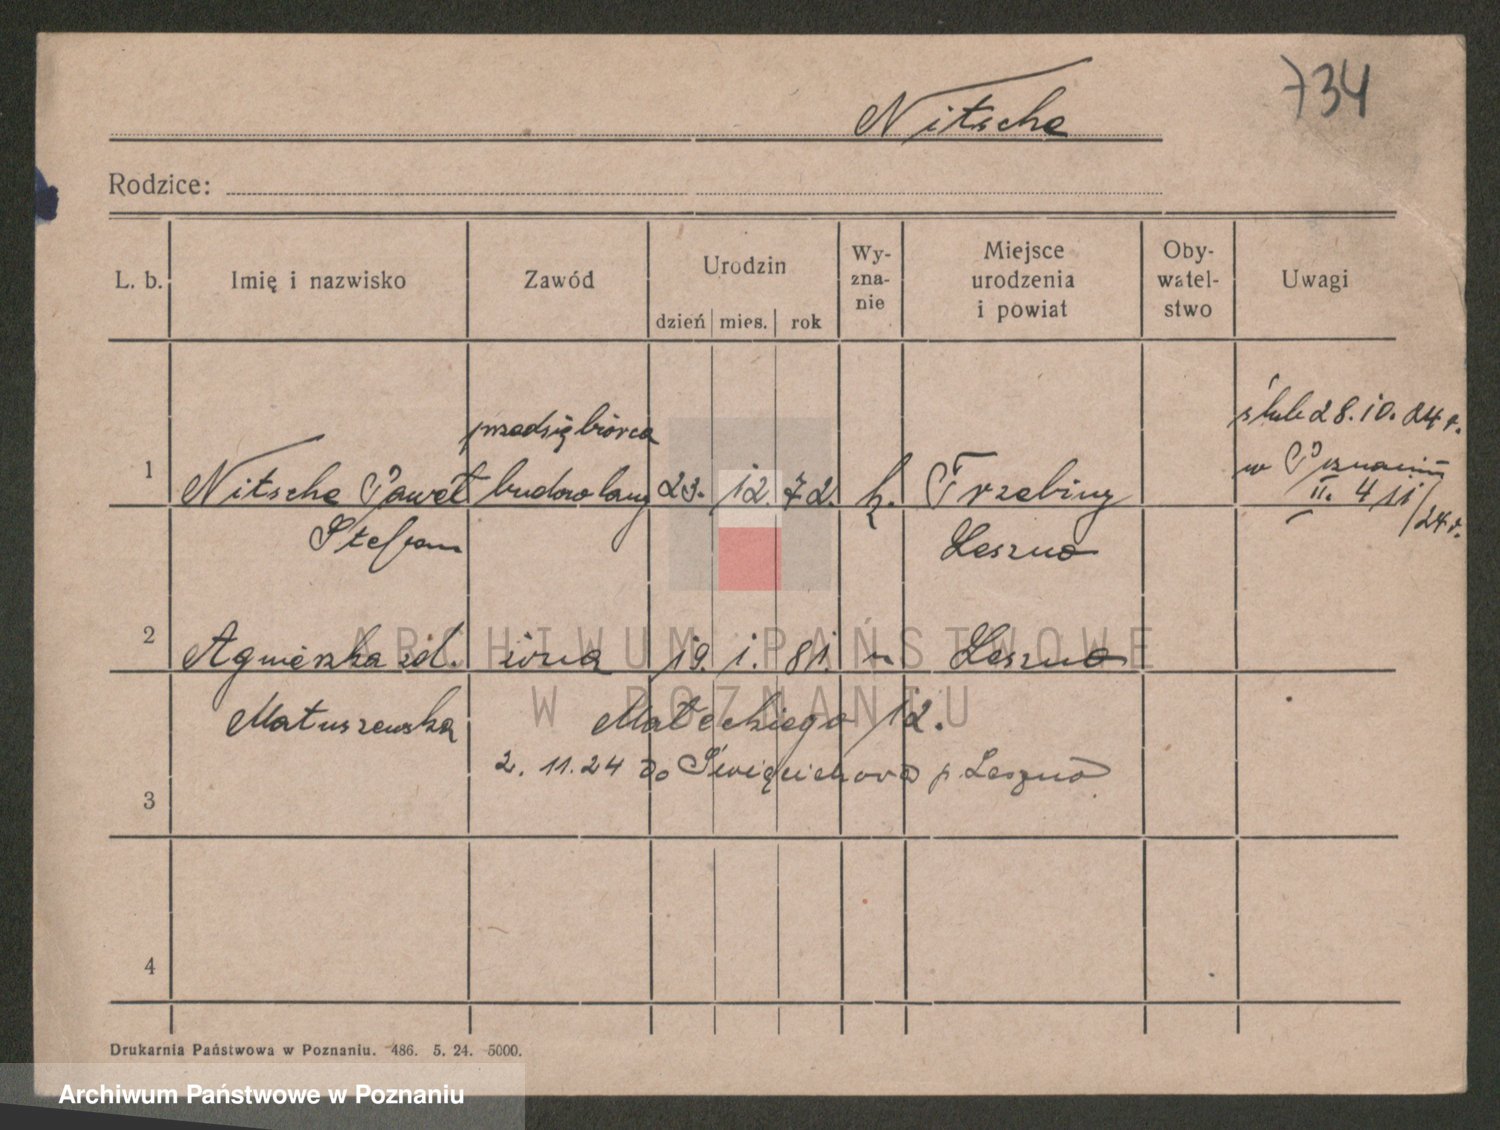 734
Nitsche
Rodzice:
L. b. Imię i nazwisko Zawód Urodzin dzień mies. rok Wy-zna-nie Miejsce urodzenia i powiat Oby-watel-stwo Uwagi
przedsiębiorca ślub 28. 10. 24 r.
1 Nitsche Paweł budowlany 23. 12. 72. k. Trzebiny w Poznaniu
II. 4/11/24 r.
Stefan Leszno
2 Agnieszka zd. żona 19. 1. 81. " Leszno
Matuszewska Małeckiego 12.
2. 11. 24 do Święciechowa p. Leszno
3
4
Drukarnia Państwowa w Poznaniu. 486. 5. 24. 5000.
ARCHIWUM PAŃSTWOWE
W POZNANIU
Archiwum Państwowe w Poznaniu